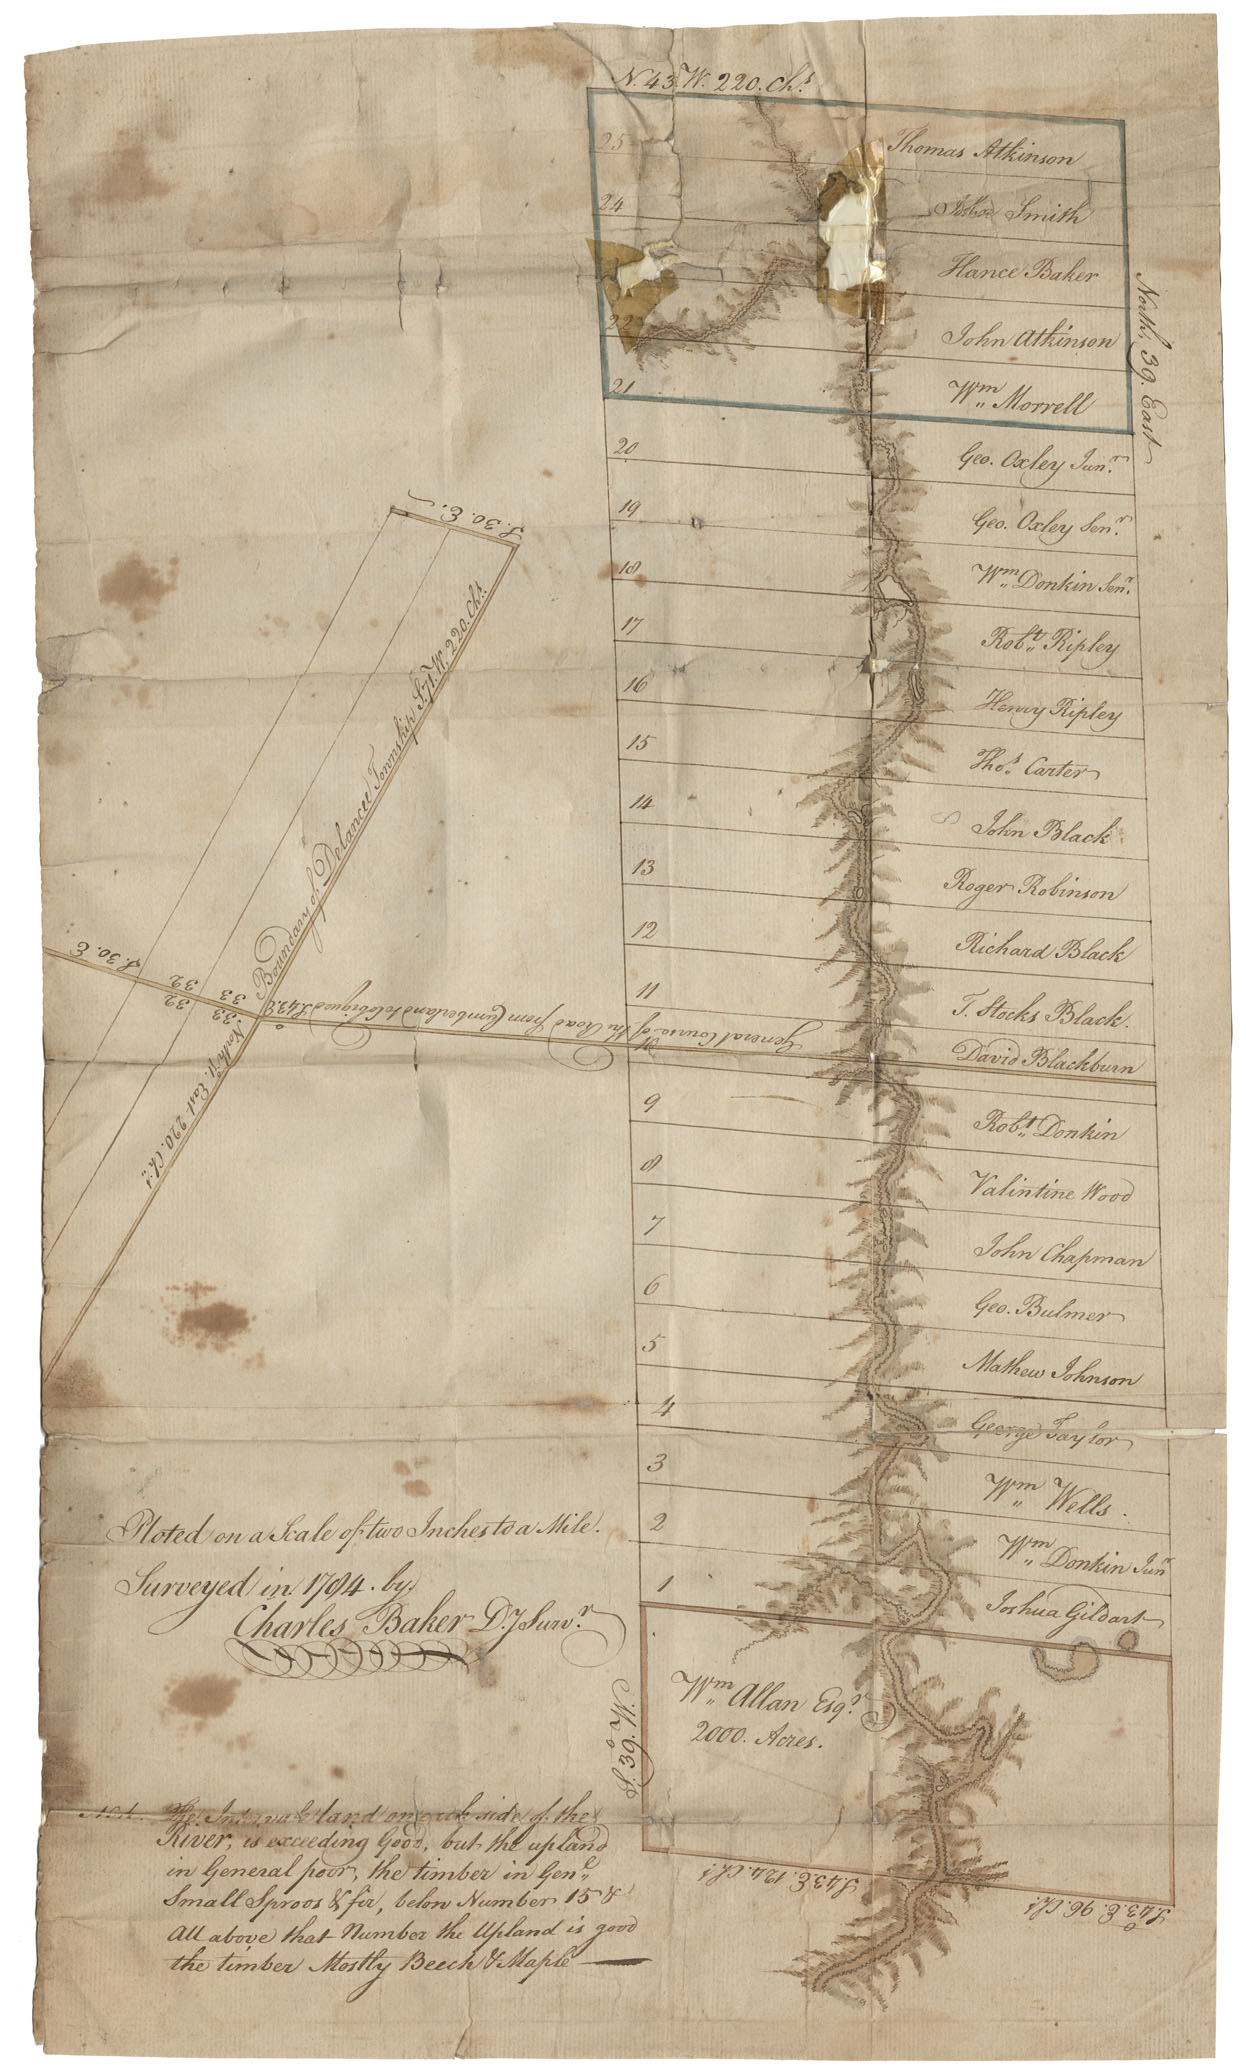 N. 43. W. 220. Chs
25 Thomas Atkinson
24 Smith
Hance Baker
22 John Atkinson
21 Wm Morrell
North, 39. East
20 Geo. Oxley Junr.
19 Geo. Oxley Senr.
18 Wm Donkin Senr.
17 Robt Ripley
16 Henry Ripley
15 Thos. Carter
14 John Black
13 Roger Robinson
12 Richard Black
11 T. Stocks Black.
David Blackburn
9 Robt Donkin
8 Valintine Wood
7 John Chapman
6 Geo. Bulmer
5 Mathew Johnson
4 George Taylor
3 Wm Wells.
2 Wm Donkin Junr
1 Joshua Gildart
S. 30. E.
Boundary of Delancee Township S. 71. W. 220. Chs.
S. 30. E
32 33
32 33
General Course of the Road from Cumberland to Cobiqued S. 43 E
North 71. East 220. Chs.
Ploted on a Scale of two Inches to a Mile.
Surveyed in 1784. by
Charles Baker D.y Survr.
Wm Allan Esqr.
2000. Acres.
S. 39. W.
S. 43. E. 124. Chs
S. 43. E. 96. Chs
Note. The Intervale land on each side of the
River, is exceeding Good, but the upland
in General poor, the timber in Genl
Small Sproos & fir, below Number 15 &
All above that Number the Upland is good
the timber Mostly Beech & Maple